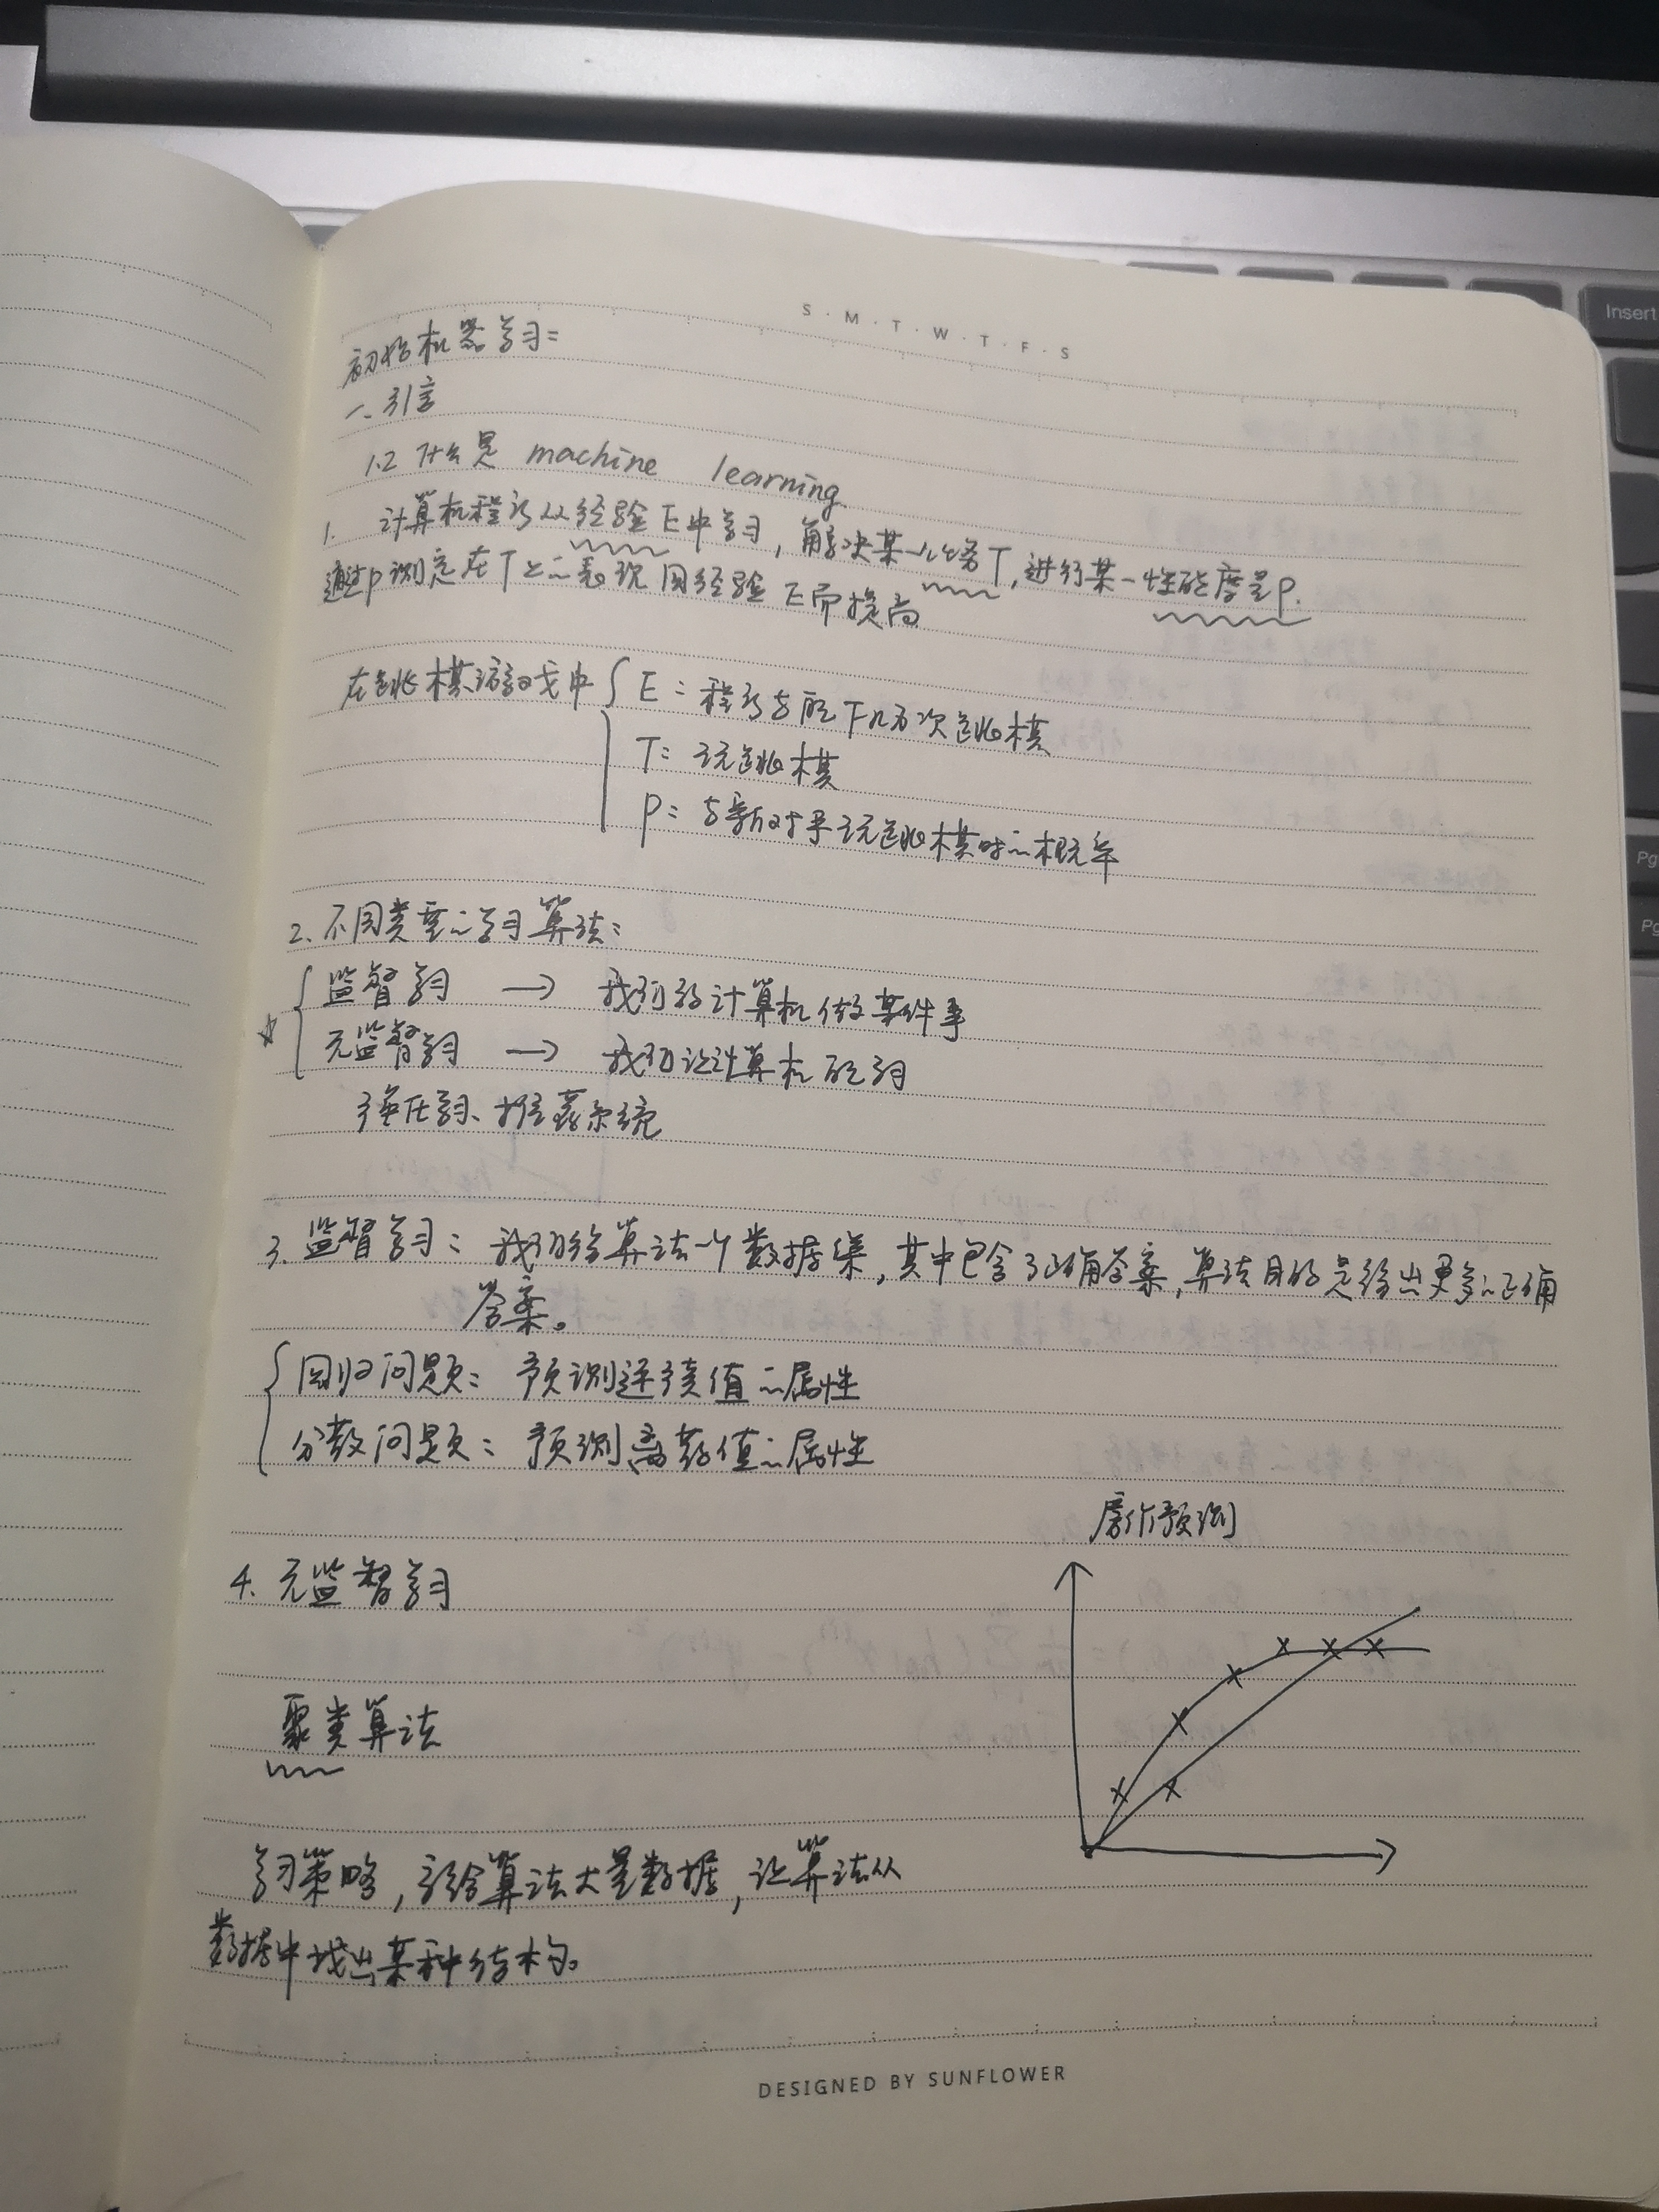 S·M·T·W·T·F·S
初始机器学习:
一、引言
1.2 什么是 machine learning
1. 计算机程序从经验E中学习,解决某一任务T,进行某一性能度量P.
通过P测定在T上的表现因经验E而提高
在跳棋游戏中 E:程序与自己下几万次跳棋
T:玩跳棋
P:与新对手玩跳棋时的概率
2. 不同类型的学习算法:
监督学习 → 我们教计算机做某件事
☆
无监督学习 → 我们让计算机自己学习
强化学习、推荐系统
3. 监督学习:我们给算法一个数据集,其中包含了正确答案,算法目的是给出更多的正确
答案。
回归问题:预测连续值的属性
分散问题:预测离散值的属性
房价预测
4. 无监督学习
聚类算法
学习策略,交给算法大量数据,让算法从
数据中找出某种结构。
DESIGNED BY SUNFLOWER
Insert
Pg
Pg